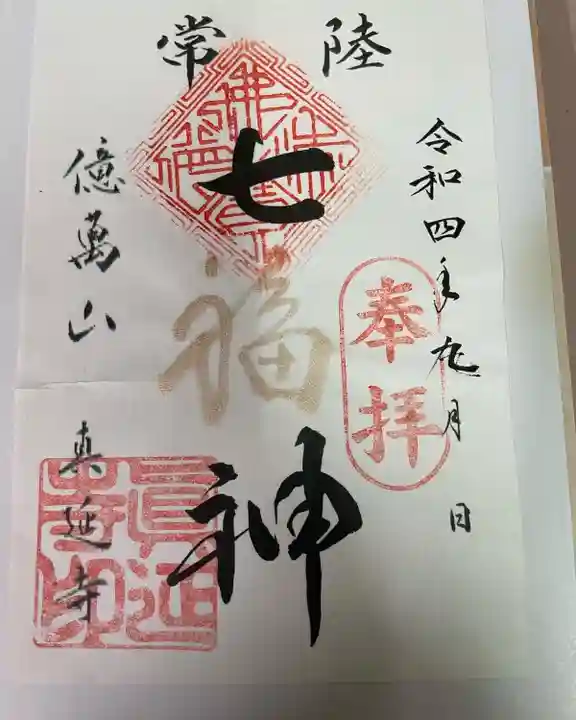 常陸
令和四年九月 日
奉拝
七福神
億萬山
真延寺
真延寺印